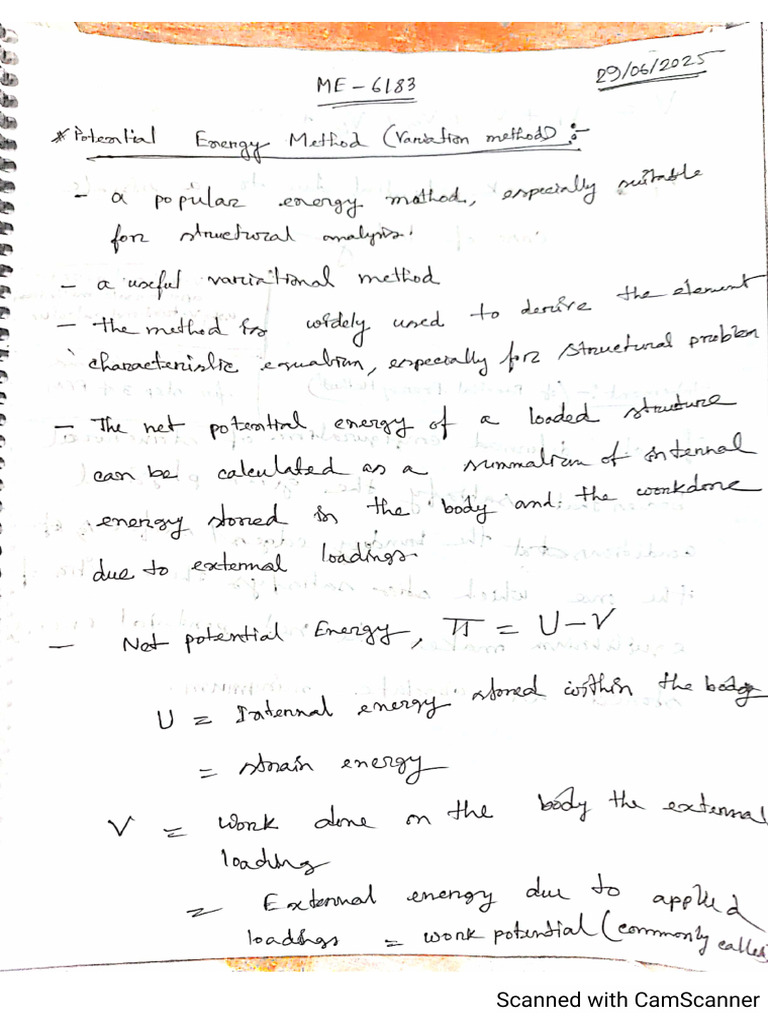 ME-6183
29/06/2025
* Potential Energy Method (Variation method) :-
- a popular energy method, especially suitable
for structural analysis.
- a useful variational method
- the method is widely used to derive the element
characteristic equation, especially for structural problem
- The net potential energy of a loaded struture
can be calculated as a summation of internal
energy stored in the body and the workdone
due to external loadings.
- Net potential Energy, Π = U-V
U = Internal energy stored within the body
= strain energy
V = Work done on the body the external
loading
= External energy due to applied
loadings = work potential (commonly called)
Scanned with CamScanner